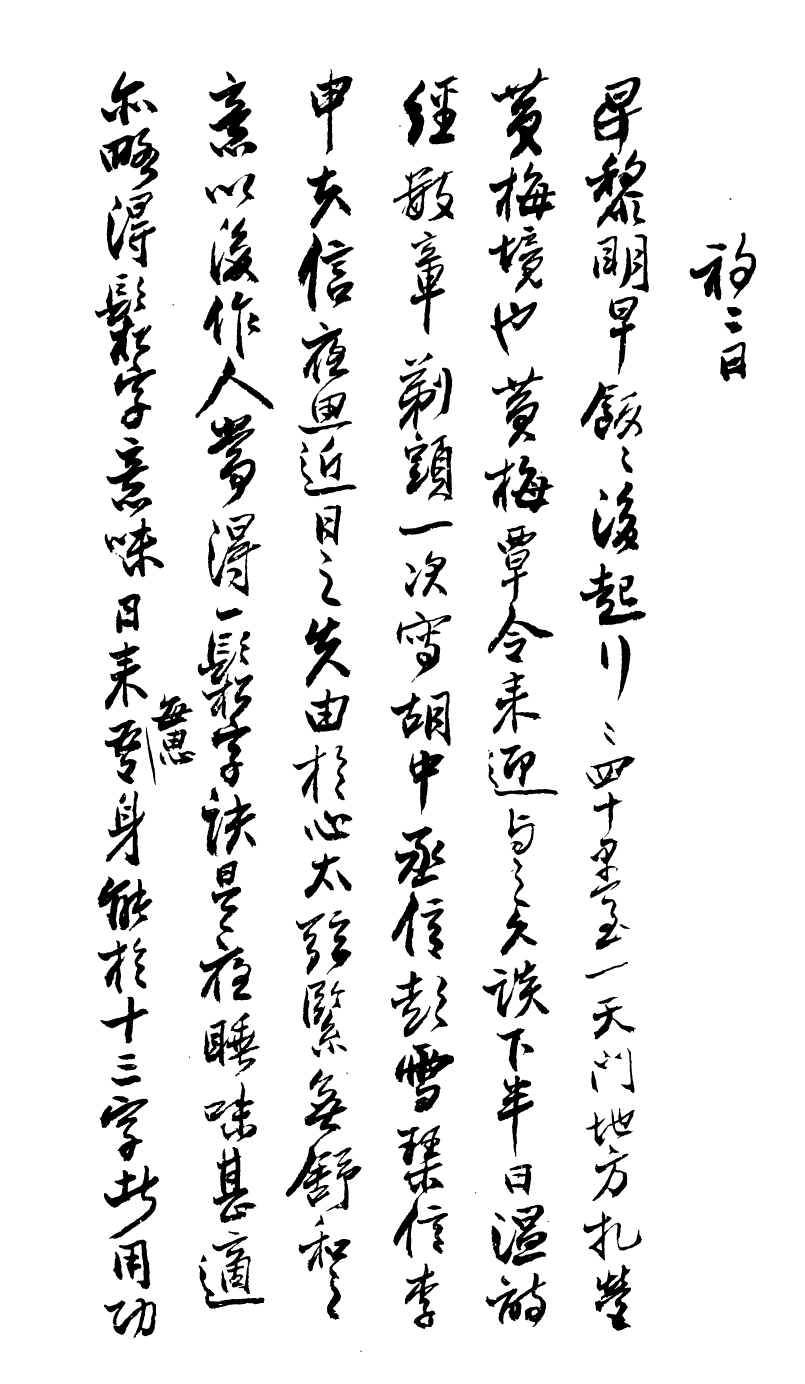 初二日
早黎明早飯々後起行々四十里至一天門地方扎營
黄梅境也黄梅覃令来迎与之久談下半日温詩
經數章剃頭一次寫胡中丞信彭雪琹信李
申夫信夜思近日之失由於心太弦緊無舒和之
意以後作人當得一鬆字訣是夜睡味甚適
亦略得鬆字意味日来每思吾身能於十三字者用功